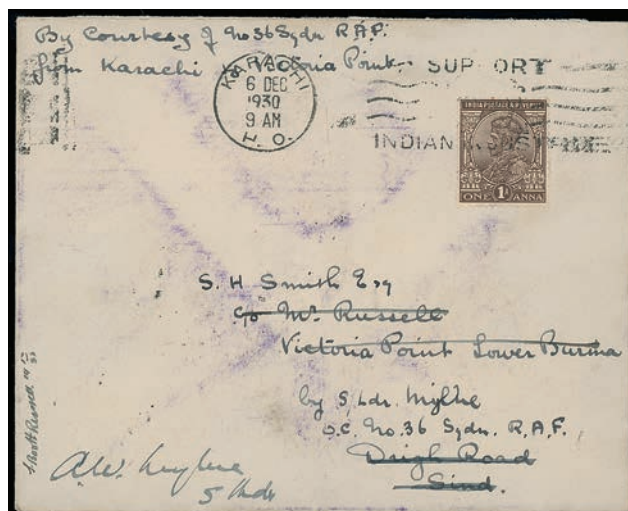 By Courtesy of No 36 Sqdn R.A.F.
from Karachi to Victoria Point
KARACHI
6 DEC
1930
9 AM
H.O.
SUPPORT
INDIAN INDUSTRIES
INDIA POSTAGE & REVENUE
ONE 1 ANNA
S. H Smith Esq
c/o Mr. Russell
Victoria Point Lower Burma
by S/Ldr. Mylne
O.C. No.36 Sqdn. R.A.F.
Drigh Road
Sind.
S/Ldr